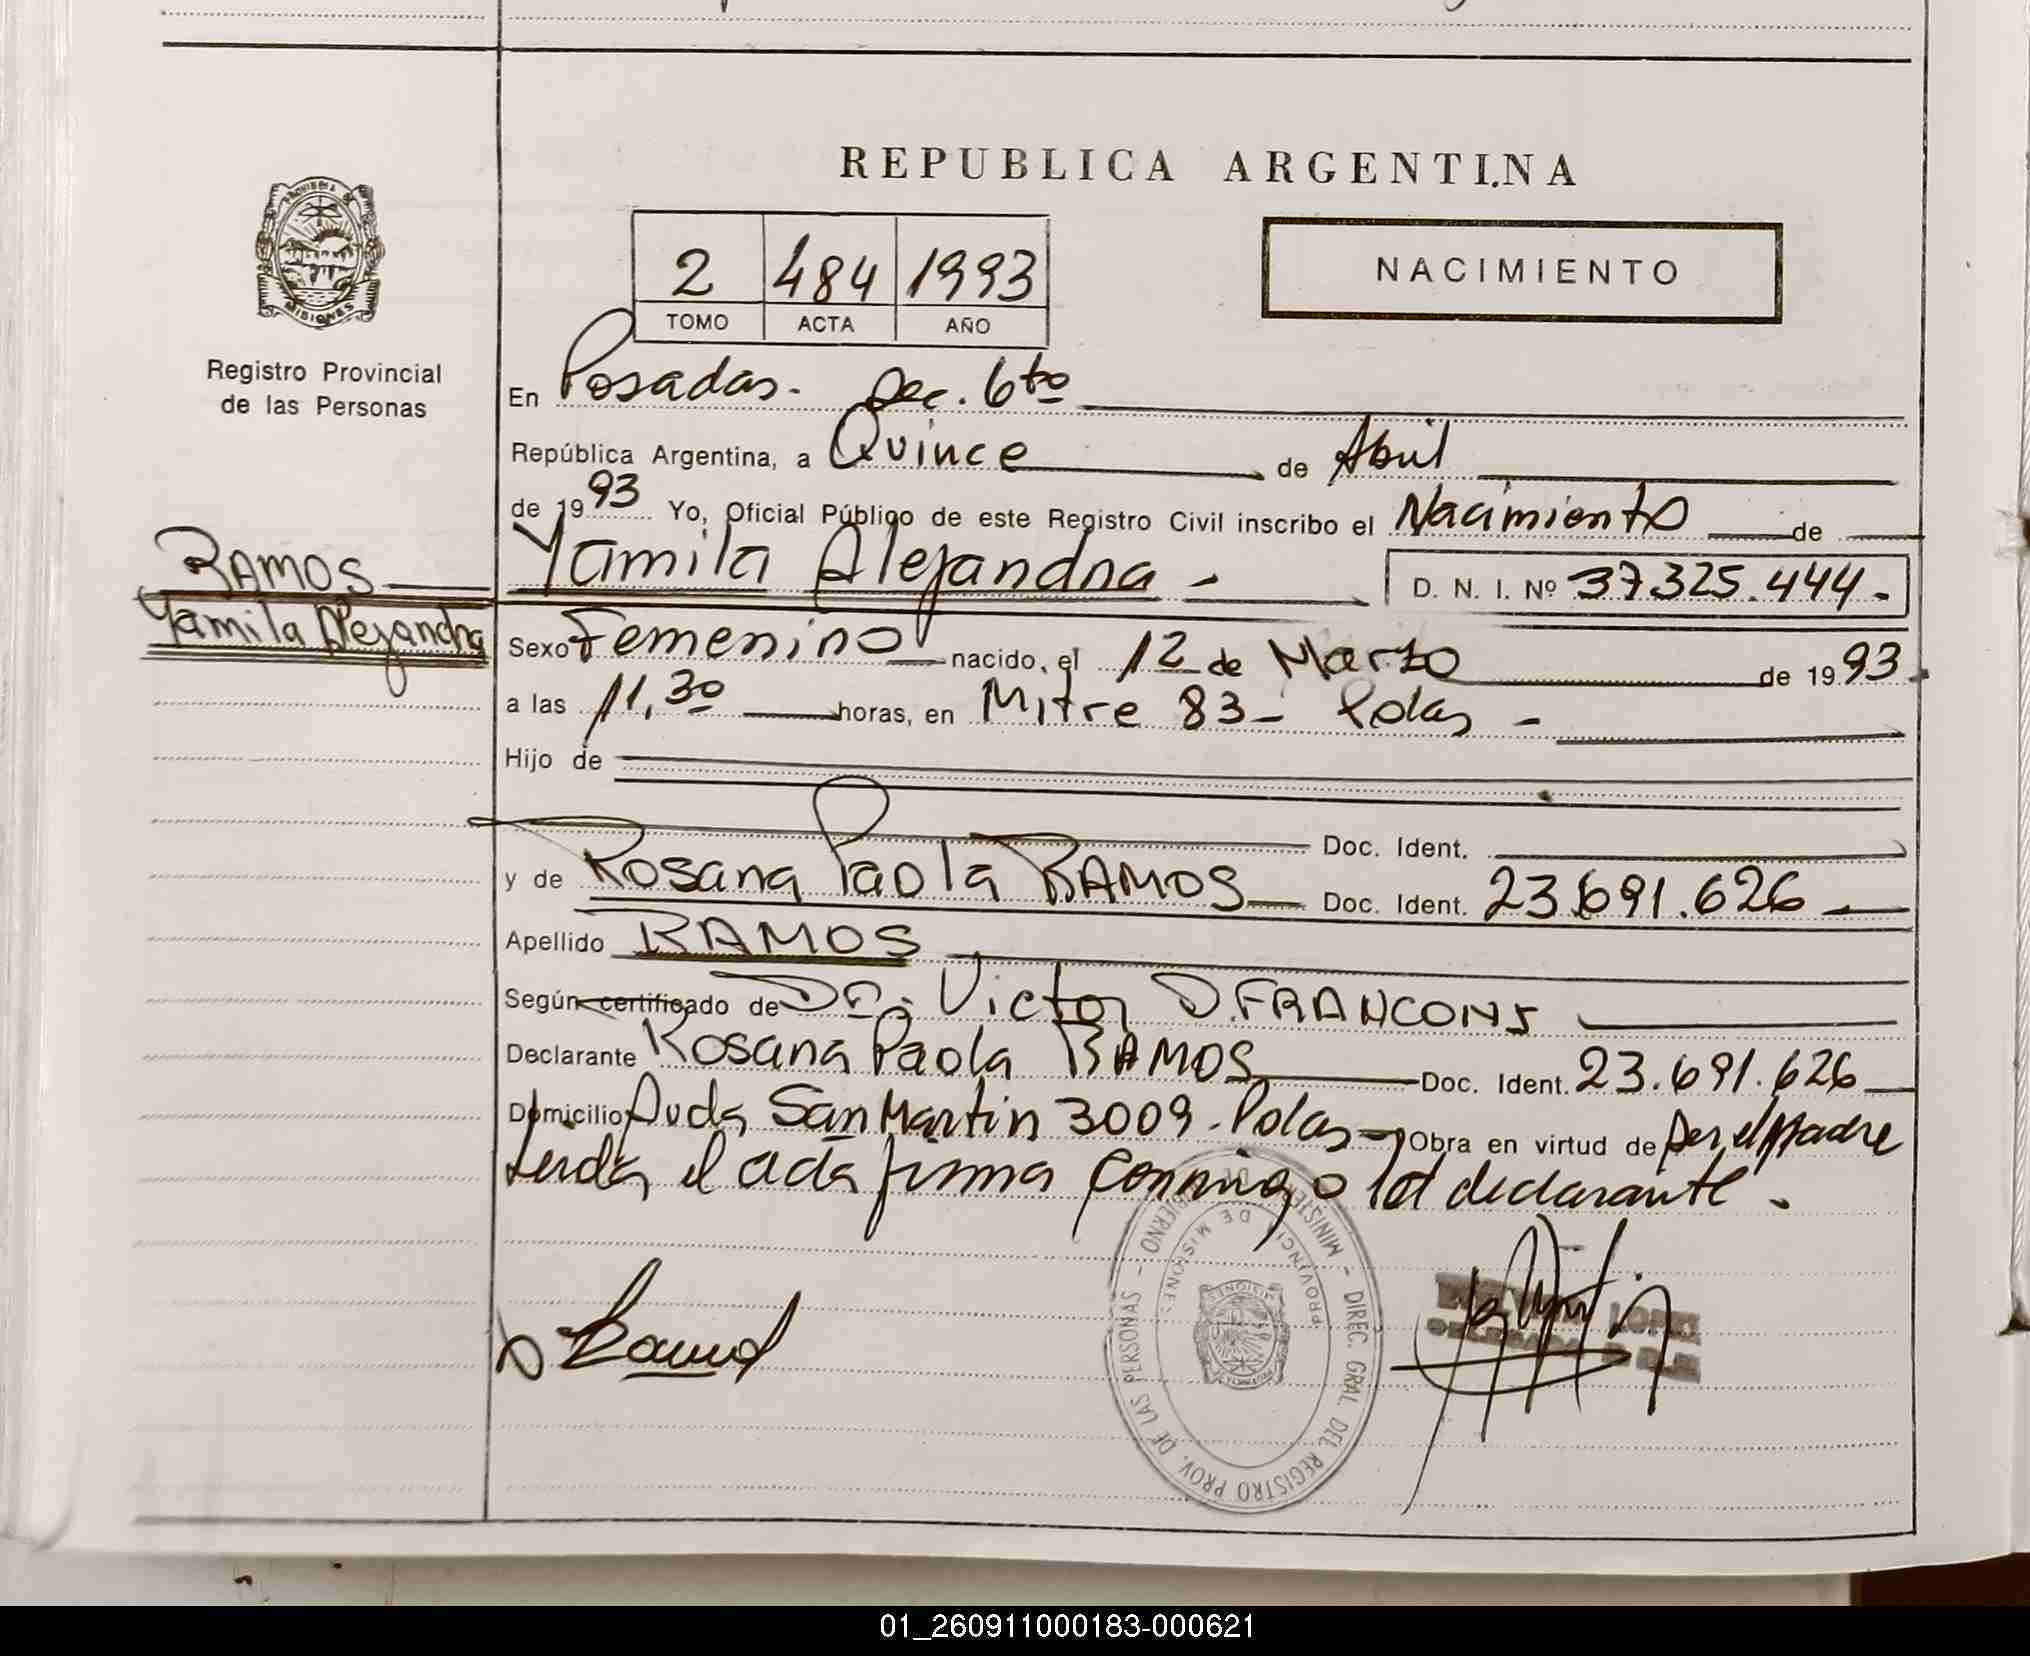 REPUBLICA ARGENTINA
2 484 1993
TOMO ACTA AÑO
NACIMIENTO
PROVINCIA DE
MISIONES
Registro Provincial
de las Personas
RAMOS
Yamila Alejandra
En Posadas. Sec. 6to
República Argentina, a Quince de Abril
de 1993 Yo, Oficial Público de este Registro Civil inscribo el Nacimiento de
Yamila Alejandra - D. N. I. Nº 37.325.444-
Sexo Femenino nacido, el 12 de Marzo de 1993
a las 11,30 horas, en Mitre 83- Pdas -
Hijo de
Doc. Ident.
y de Rosana Paola RAMOS Doc. Ident. 23.691.626-
Apellido RAMOS
Según certificado de DR. Victor D.
Declarante Rosana Paola RAMOS Doc. Ident. 23.691.626
Domicilio Avda San Martin 3009. Pdas- Obra en virtud de Ser el Madre
Leida el acta firma conmigo la declarante.
MINISTERIO DE GOBIERNO - DIREC. GRAL. DEL REGISTRO PROV. DE LAS PERSONAS -
PROVINCIA DE MISIONES
LOPEZ
01_260911000183-000621